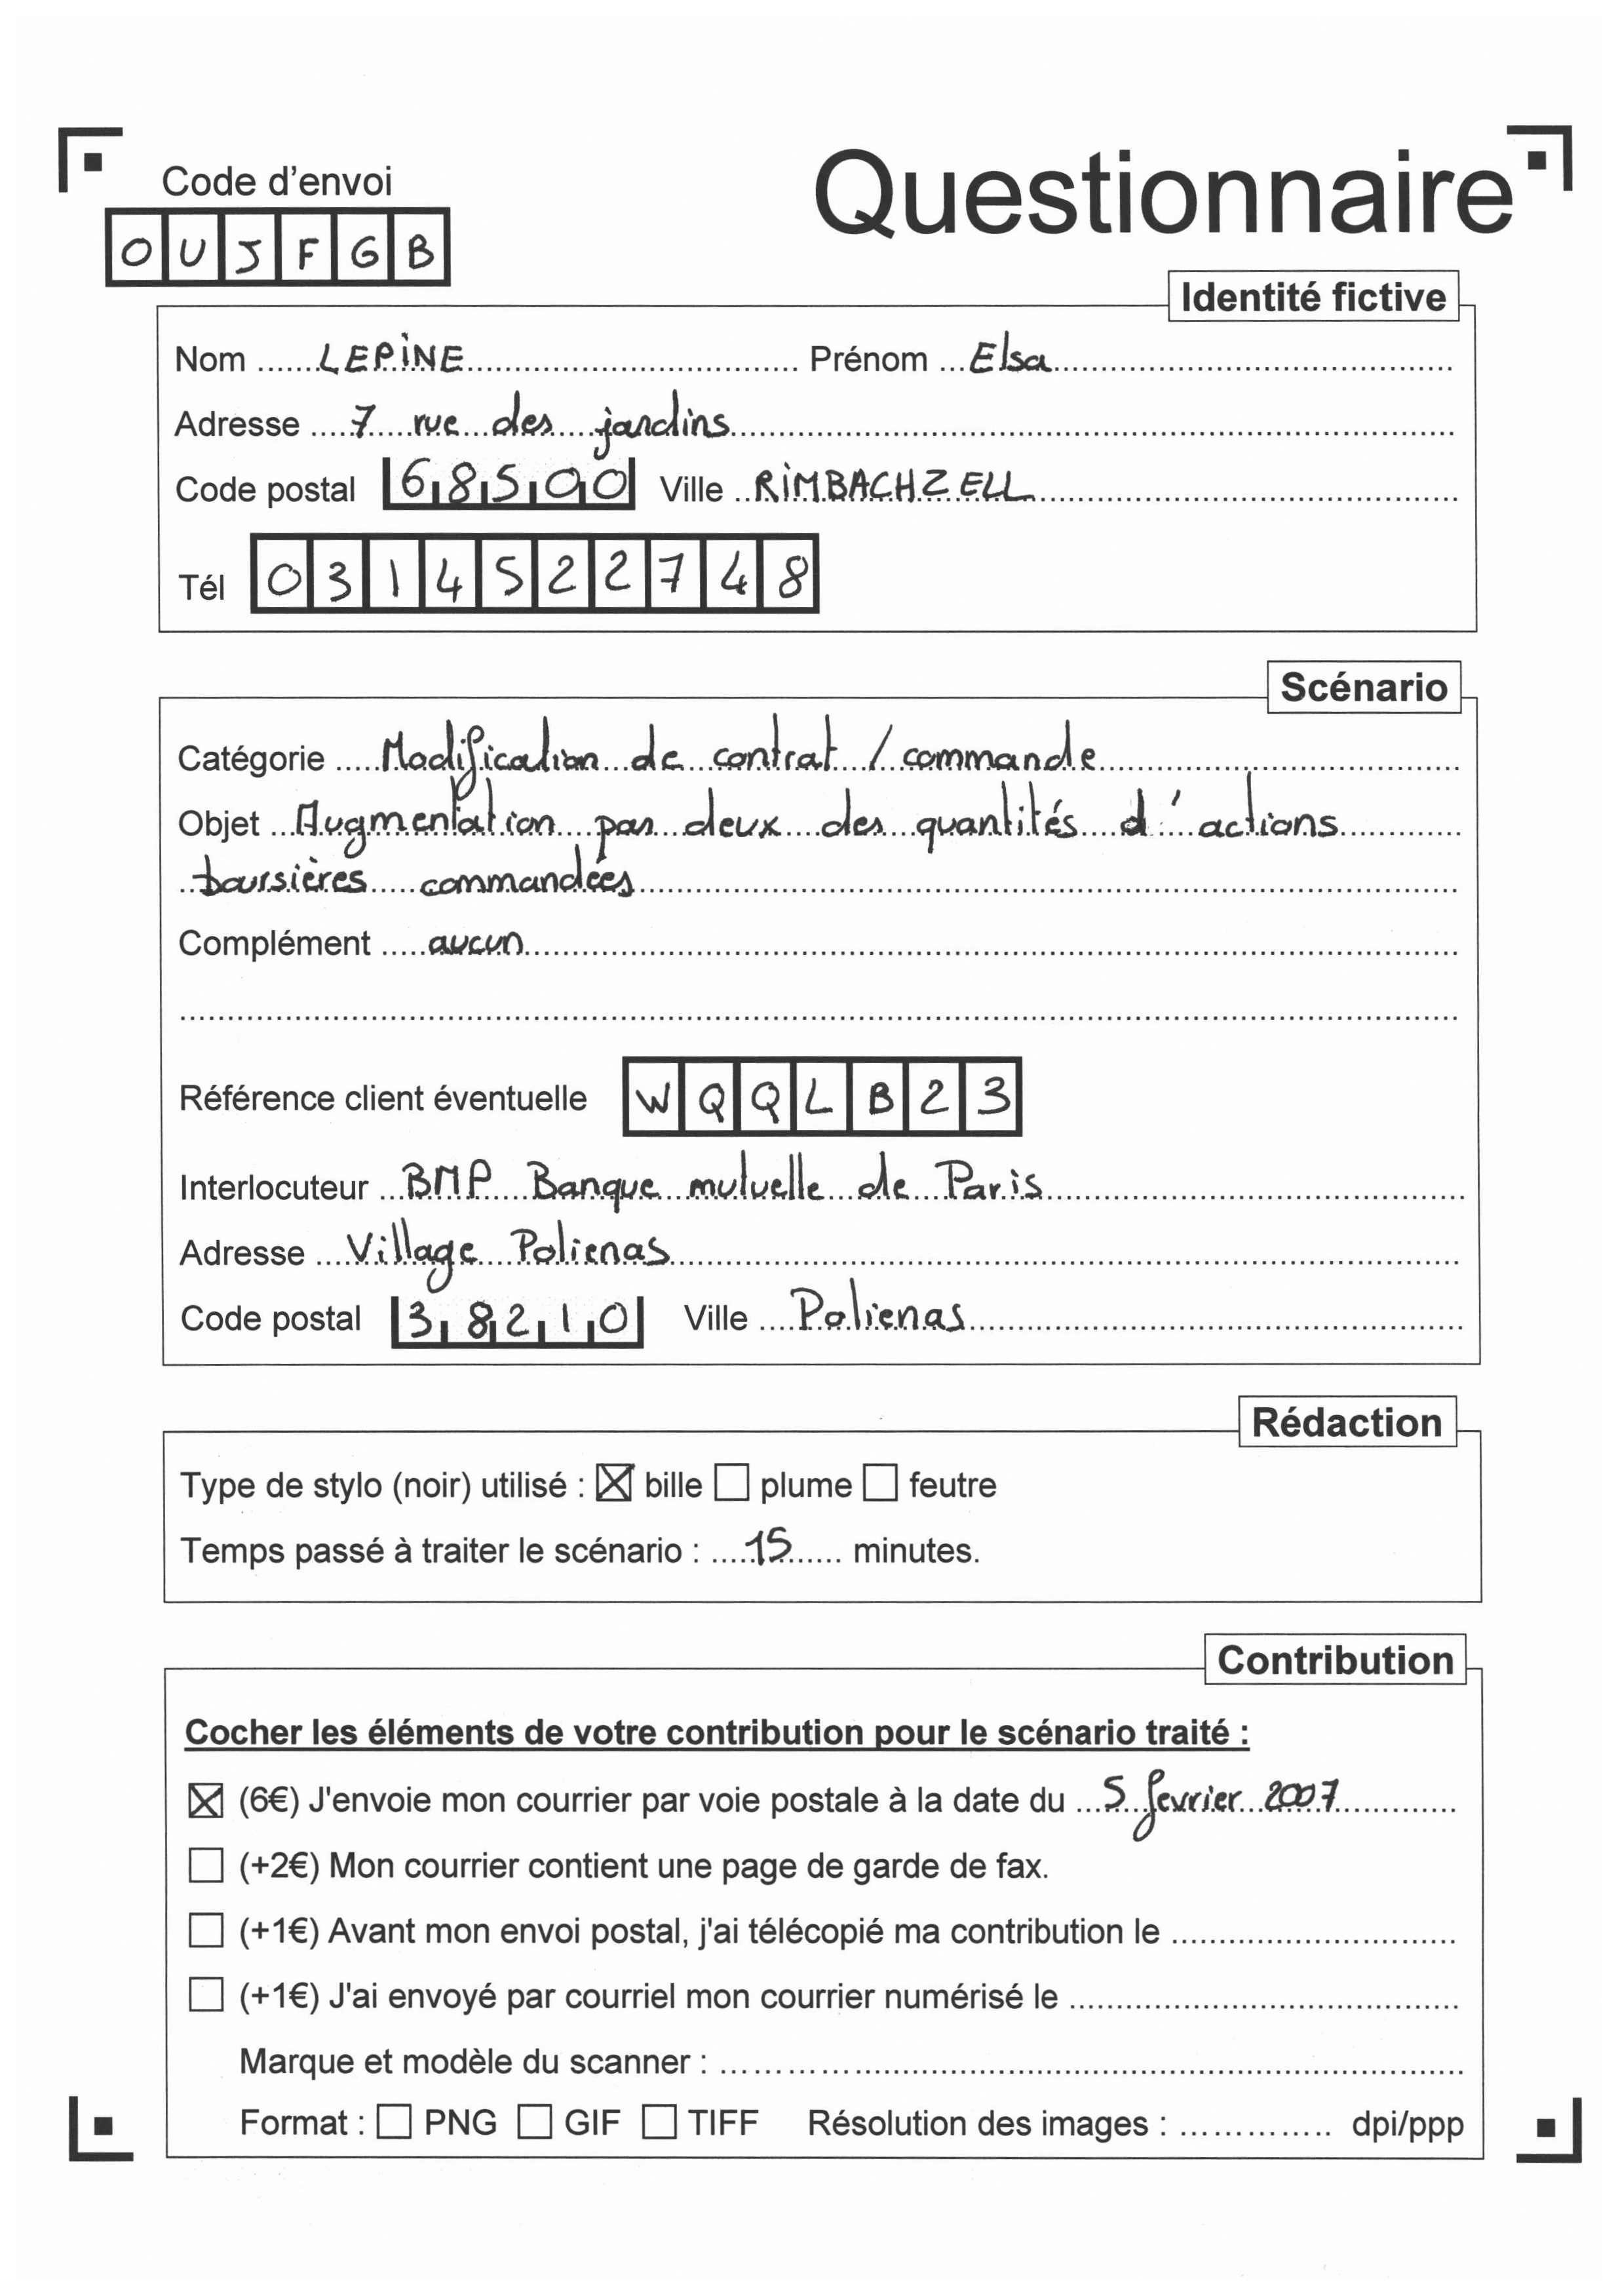 Code d'envoi
Questionnaire
OUJFGB
Identité fictive
Nom ...... LEPINE ...... Prénom ... Elsa ......
Adresse .... 7 rue des jardins ......
Code postal 68500 Ville .. RIMBACHZELL ......
Tél 0314522748
Scénario
Catégorie .... Modification de contrat / commande ......
Objet .. Augmentation par deux des quantités d'actions ......
boursières commandées ......
Complément .... aucun ......
Référence client éventuelle WQQLB23
Interlocuteur .. BMP Banque mutuelle de Paris ......
Adresse ... Village Polienas ......
Code postal 38210 Ville ... Polienas ......
Rédaction
Type de stylo (noir) utilisé : ☒ bille ☐ plume ☐ feutre
Temps passé à traiter le scénario : .... 15 ...... minutes.
Contribution
Cocher les éléments de votre contribution pour le scénario traité :
☒ (6€) J'envoie mon courrier par voie postale à la date du ... 5 fevrier 2007 ......
☐ (+2€) Mon courrier contient une page de garde de fax.
☐ (+1€) Avant mon envoi postal, j'ai télécopié ma contribution le ......
☐ (+1€) J'ai envoyé par courriel mon courrier numérisé le ......
Marque et modèle du scanner : ......
Format : ☐ PNG ☐ GIF ☐ TIFF Résolution des images : ...... dpi/ppp